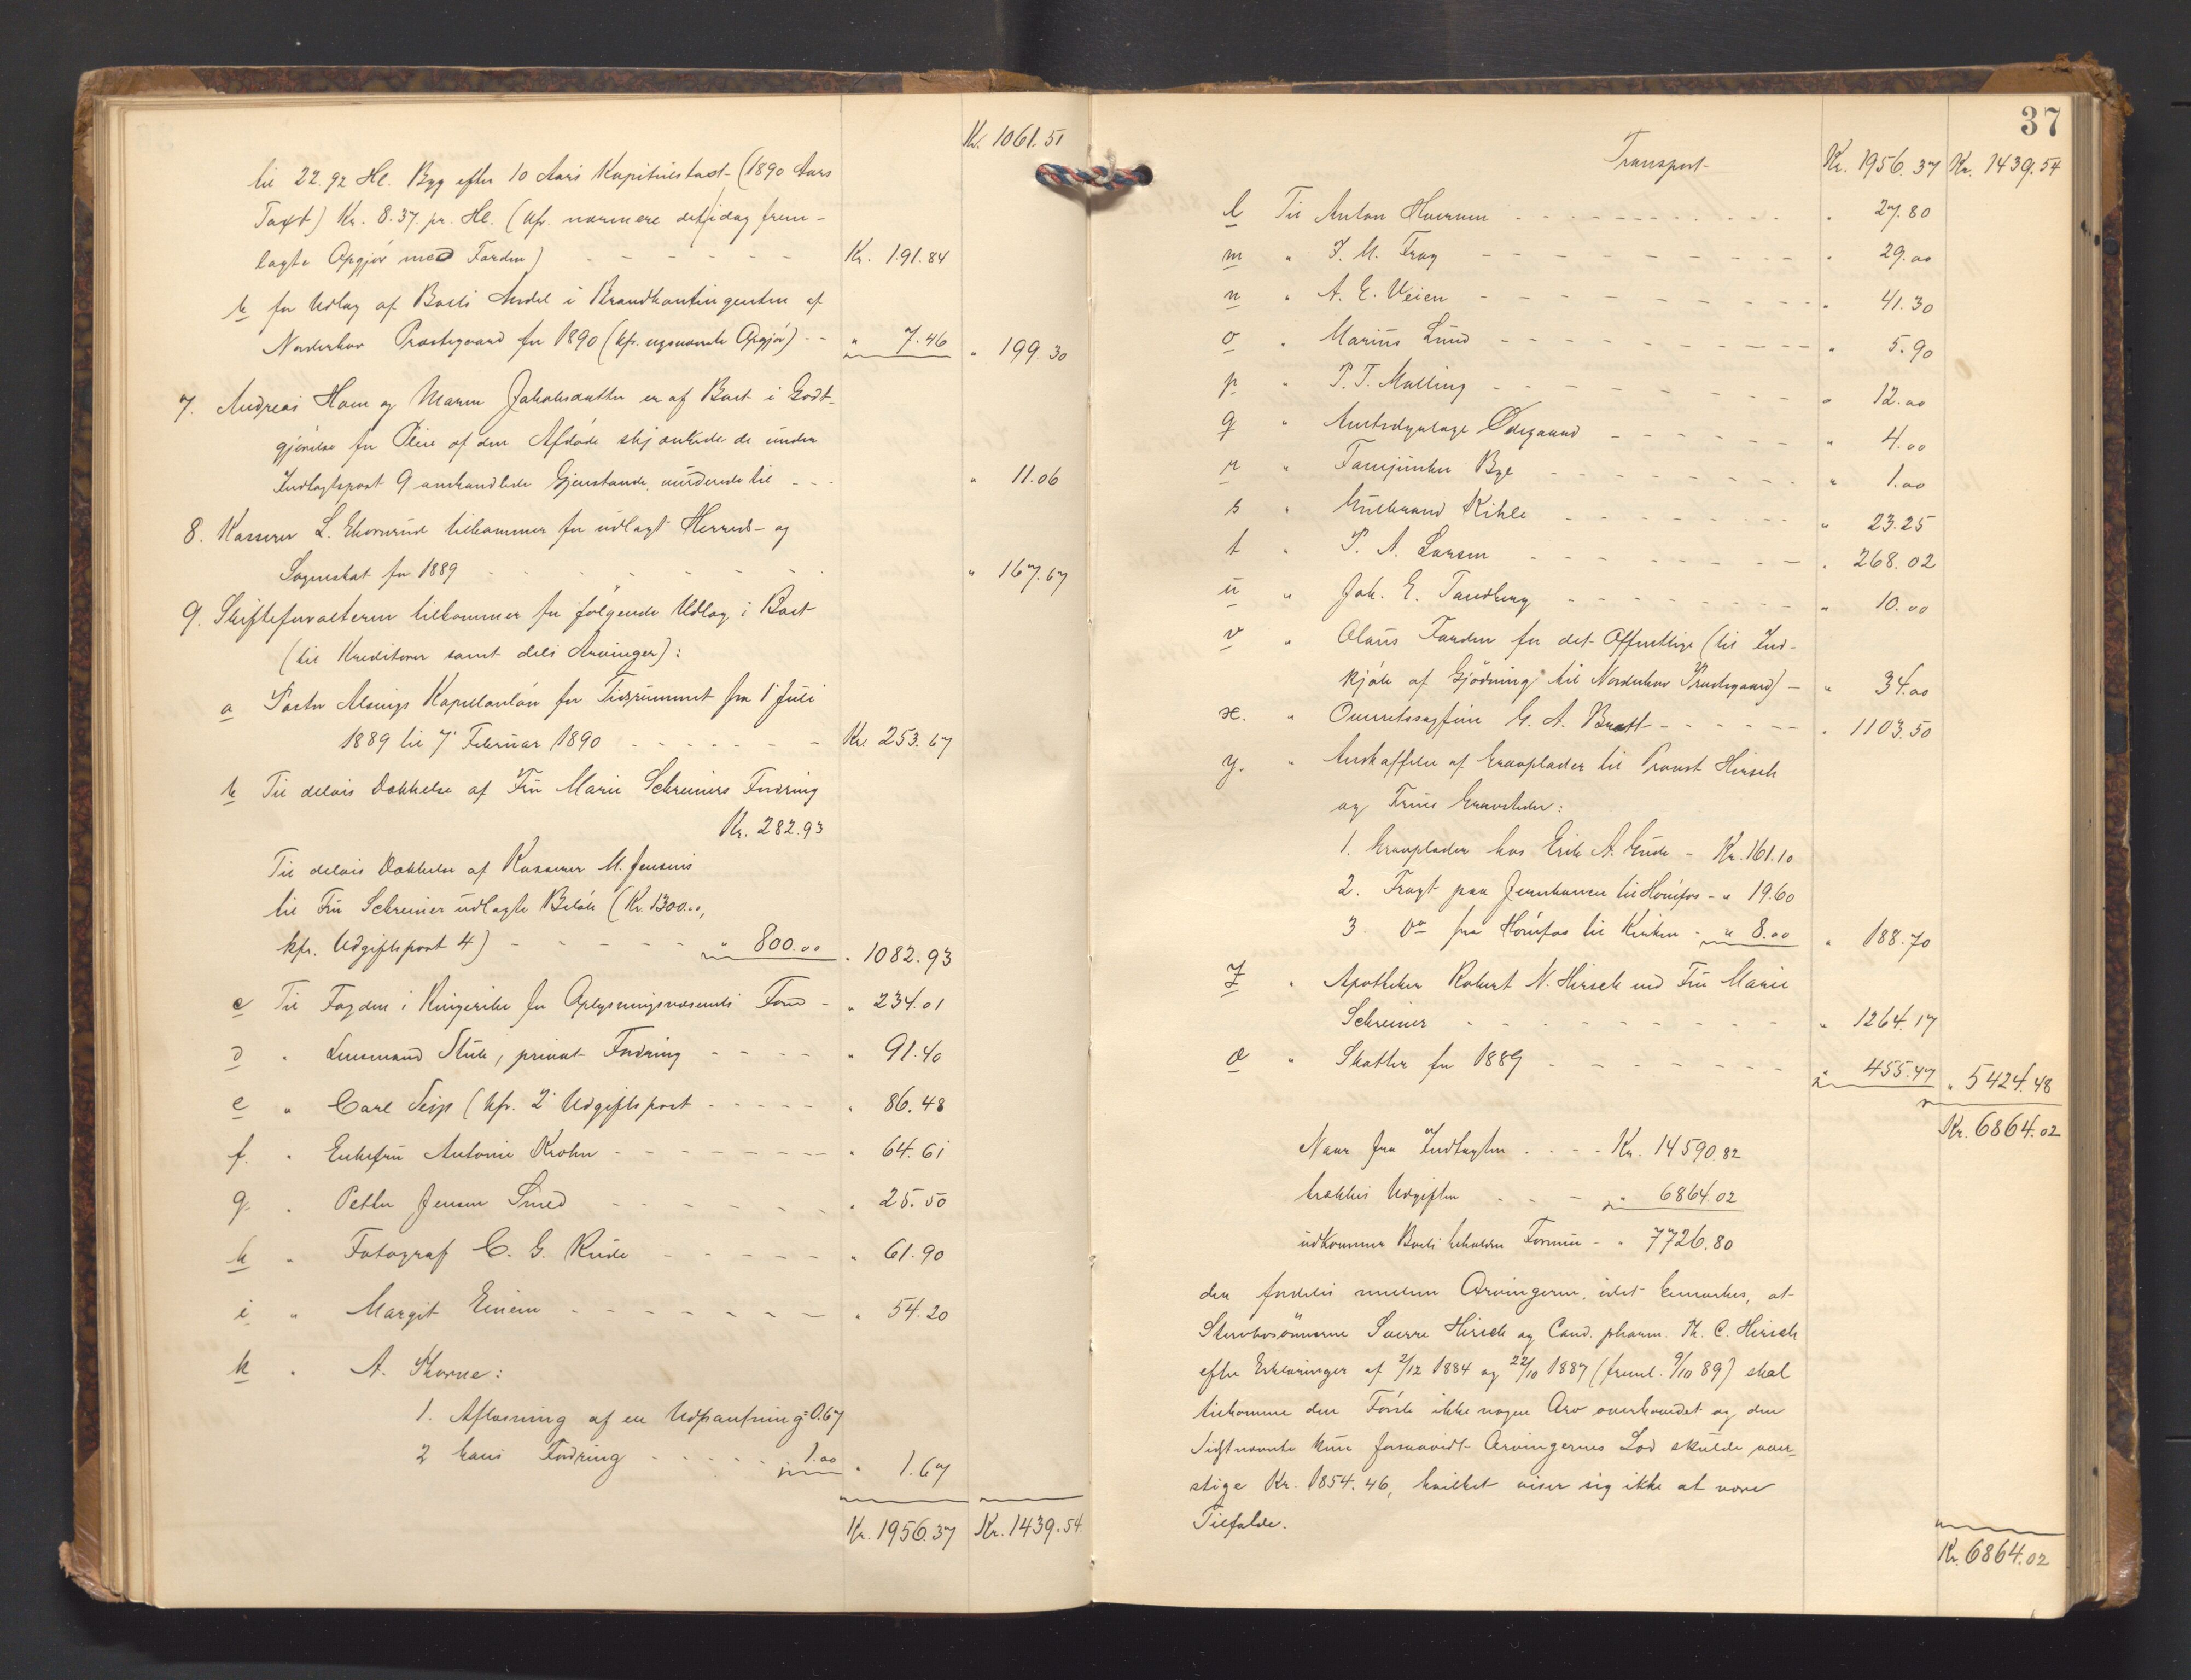 Kr. 1061.51
til 22.92 Hl. Byg efter 10 Aars Kapitelstaxt (1890 Aars
Taxt) Kr. 8.37 pr. Hl. (kfr. nærmere det idag frem-
lagte Opgjør med Farden) - - - - - - Kr. 191.84
b for Udlæg af Boets Andel i Brandkontingenten af
Norderhov Præstegaard for 1890 (kfr. nysnævnte Opgjør) - - " 7.46 " 199.30
7. Andreas Hom og Maren Jakobsdatter er af Boet i Godt-
gjørelse for Pleie af den Afdøde skjænkede de under
Indtægtspost 9 omhandlede Gjenstande, vurderede til - - " 11.06
8. Kasserer L. Ekornrud tilkommer for udlagt Herreds- og
Sogneskat for 1889 - - - - - - " 167.67
9. Skifteforvalteren tilkommer for følgende Udlæg i Boet
(til Kreditorer samt dels Arvinger):
a Pastor Alsings Kapellanløn for Tidsrummet fra 1 Juli
1889 til 7 Februar 1890 - - - - - - Kr. 253.67
b Til delvis Dækkelse af Fru Marie Schreiners Fordring
Kr. 282.93
Til delvis Dækkelse af Kasserer M. Jensens
til Fru Schreiner udlagte Beløb (Kr. 1300.00,
kfr. Udgiftspost 4) - - - - - " 800.00 " 1082.93
c Til Fogden i Ringerike for Oplysningsvæsenets Fond - " 234.01
d " Lensmand Stub, privat Fordring - - - - " 91.40
e " Carl Seip (kfr. 2 Udgiftspost - - - - - " 86.48
f. " Enkefru Antonie Krohn - - - - - - - " 64.61
g. " Petter Jensen Smed - - - - - - - " 25.50
h " Fotograf C. G. Rude - - - - - - " 61.90
i " Margit Einem - - - - - - - " 54.20
k " A. Skorne:
1. Aflæsning af en Udpantning = 0.67
2 hans Fordring - - - - - 1.00 " 1.67
Kr. 1956.37 Kr. 1439.54
37
Transport Kr. 1956.37 Kr. 1439.54
l Til Anton Hverven - - - - - - - - - " 27.80
m " J. M. Frog - - - - - - - - - " 29.00
n " A. E. Veien - - - - - - - - - " 41.30
o " Marius Lund - - - - - - - - - " 5.90
p " P. T. Malling - - - - - - - - " 12.00
q " Amtsdyrlæge Ødegaard - - - - - - " 4.00
r " Fanejunker Bye - - - - - - - - " 1.00
s " Gulbrand Kihle - - - - - - - " 23.25
t " P. A. Larsen - - - - - - - - " 268.02
u " Joh. E. Tandberg - - - - - - - - " 10.00
v " Olaus Farden for det Offentlige (til Ind-
kjøb af Gjødning til Norderhov Præstegaard) - " 34.00
x. " Overretssagfører G. A. Bratt - - - - - - " 1103.50
y. " Anskaffelse af Gravplader til Provst Hirsch
og Frues Gravsteder:
1. Gravplader hos Erik A. Gude - Kr. 161.10
2. Fragt paa Jernbanen til Hønefos - " 19.60
3. Do fra Hønefos til Kirken - " 8.00 " 188.70
z " Apotheker Robert N. Hirsch ved Fru Marie
Schreiner - - - - - - - - " 1264.17
æ " Skatter for 1889 - - - - - - - " 455.47 " 5424.48
Kr. 6864.02
Naar fra Indtægten - - - - Kr. 14590.82
trækkes Udgiften - - - - " 6864.02
udkommer Boets beholdne Formue - " 7726.80
der fordeles mellem Arvingerne, idet bemærkes, at
Stervbosønnerne Sverre Hirsch og Cand. pharm. Th. C. Hirsch
efter Erklæringer af 2/12 1884 og 22/10 1887 (freml. 9/10 89) skal
tilkomme den Første ikke nogen Arv overhovedet og den
Sidstnævnte kun forsaavidt Arvingernes Lod skulde over-
stige Kr. 1854.46, hvilket viser sig ikke at være
Tilfælde.
Kr. 6864.02